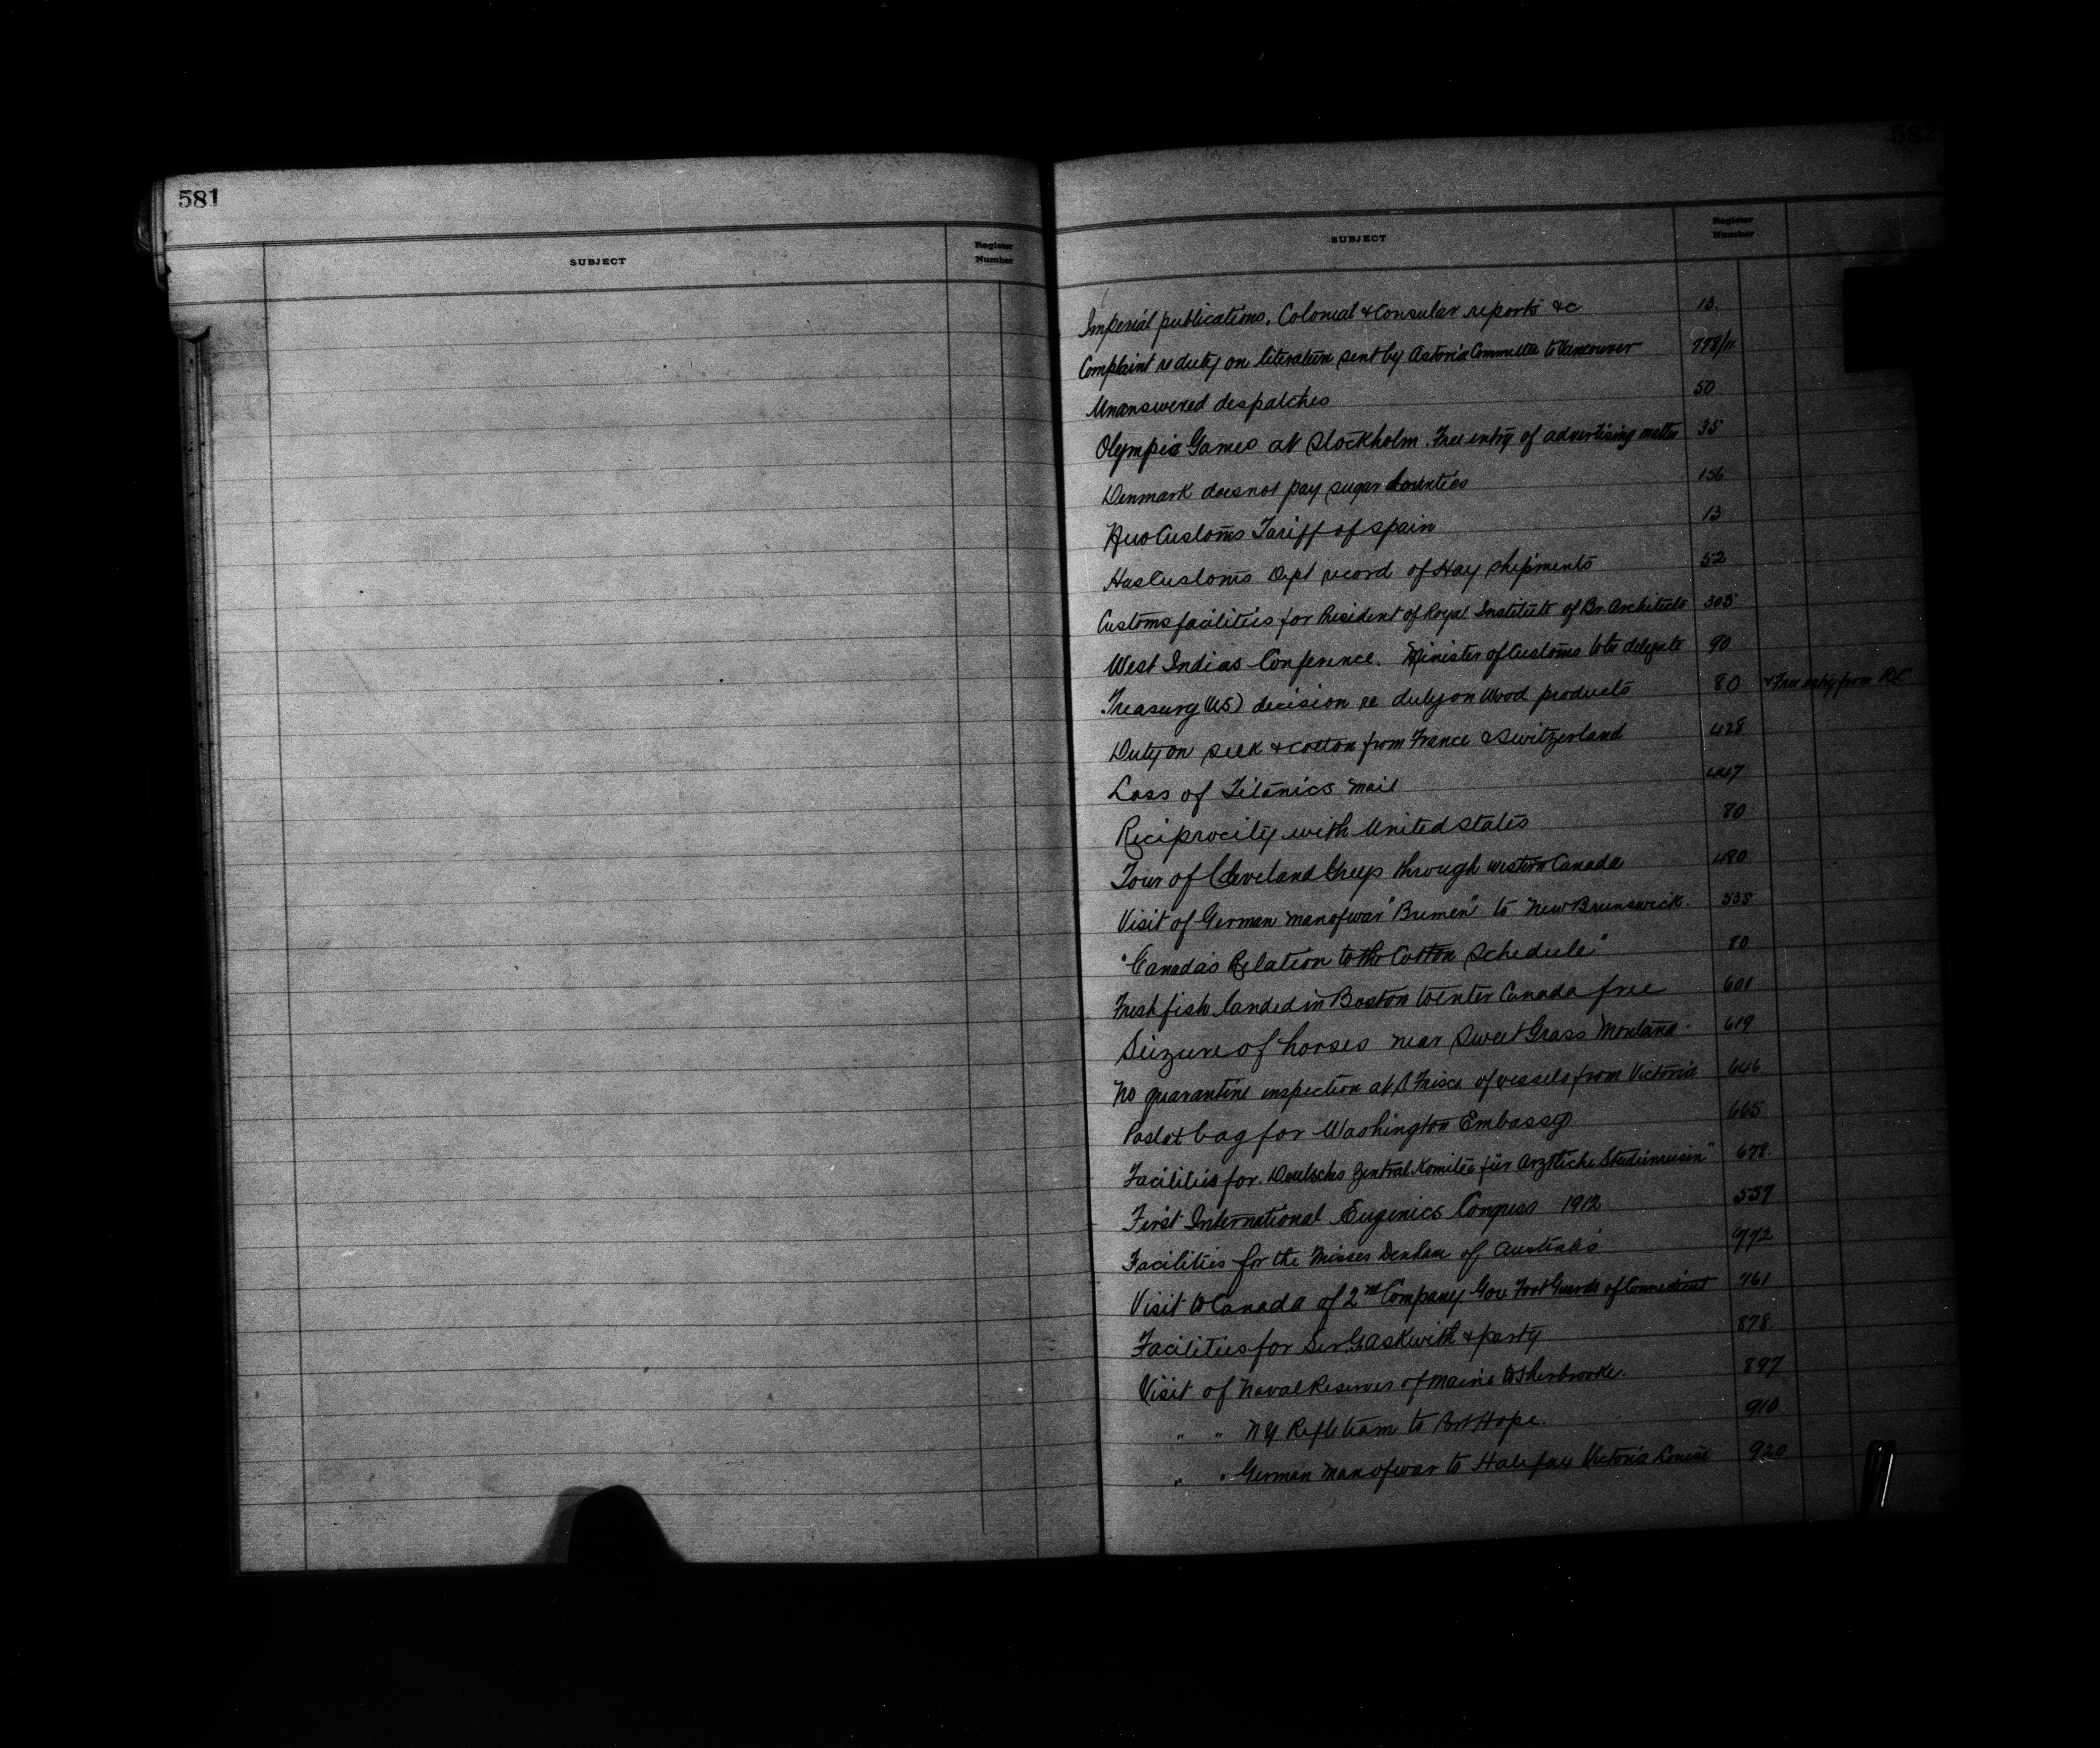 581
SUBJECT
Register
Number
582
SUBJECT
Register
Number
Imperial publications, Colonial & Consular reports &c 13.
Complaint re duty on literature sent by Astoria Committee to Vancouver 778/11
Unanswered despatches 50
Olympic Games at Stockholm. Free entry of advertising matter 35
Denmark does not pay sugar bounties 156
New Customs Tariff of Spain 13
Has Customs Dept record of Hay shipments 52
Customs facilities for President of Royal Institute of Br. Architects 305
West Indias Conference. Minister of Customs to be delegate 90
Treasury (US) decision re duty on Wood products 80 & Free entry from
Duty on silk & cotton from France & Switzerland 428
Loss of Titanics mail 447
Reciprocity with United States 80
Tour of Cleveland through western Canada 480
Visit of German man of war "Bremen" to New Brunswick. 535
"Canada's Relation to the Cotton Schedule" 80
Fresh fish landed in Boston to enter Canada free 601
Seizure of horses near Sweet Grass Montana. 619
No quarantine inspection at S. Frisco of vessels from Victoria 646
bag for Washington Embassy 665
Facilities for. Deutsches Zentral Komitee für Arztliche Studienreisin" 678.
First International Eugenics Congress 1912 557
Facilities for the Misses Denham of Australia 772
Visit to Canada of 2nd Company Gov Foot Guards of Connecticut 761
Facilities for Sir G Askwith & party 878.
Visit of Naval Reserves of Maine to Sherbrooke. 897
" " NY Rifle team to Port Hope. 910
" " German man of war to Halifax Victoria Louise 920